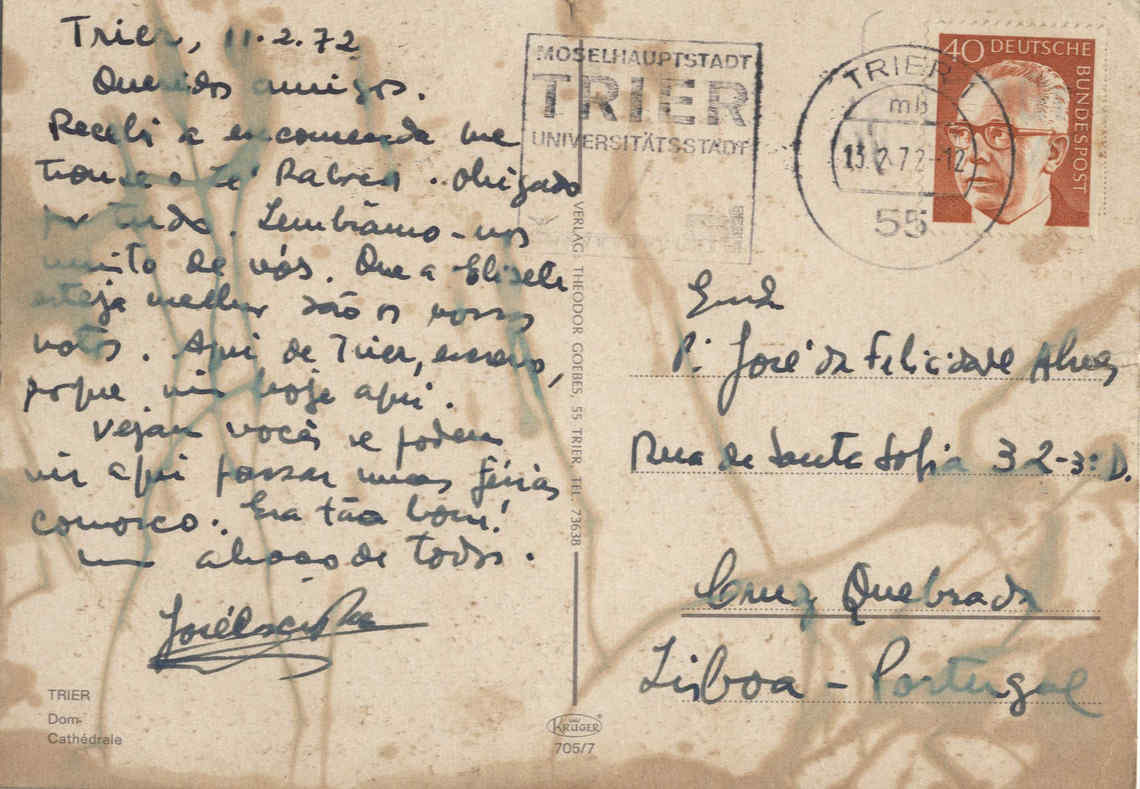 Trier, 11.2.72
Queridos amigos.
Recebi a encomenda que me
trouxe o té Rabreu. Obrigado
por tudo. Lembrâmo-nos
muito de vós. Que a Elisete
esteja melhor são os nossos
votos. Aqui de Trier, escrevo,
porque vim hoje aqui.
Vejam vocês se podem
vir aqui passar umas férias
conosco. Era tão bom!
um abraço de todos.
TRIER
Dom-
Cathédrale
MOSELHAUPTSTADT
TRIER
UNIVERSITÄTSSTADT
TRIER 1
mb
13.2.72-12
55
40 DEUTSCHE
BUNDESPOST
VERLAG: THEODOR GOEBES, 55 TRIER, TEL. 73638
KRÜGER
705/7
José da Felicidade Alves
Rua de Santa Sofia 32-3º D.
Cruz Quebrada
Lisboa - Portugal